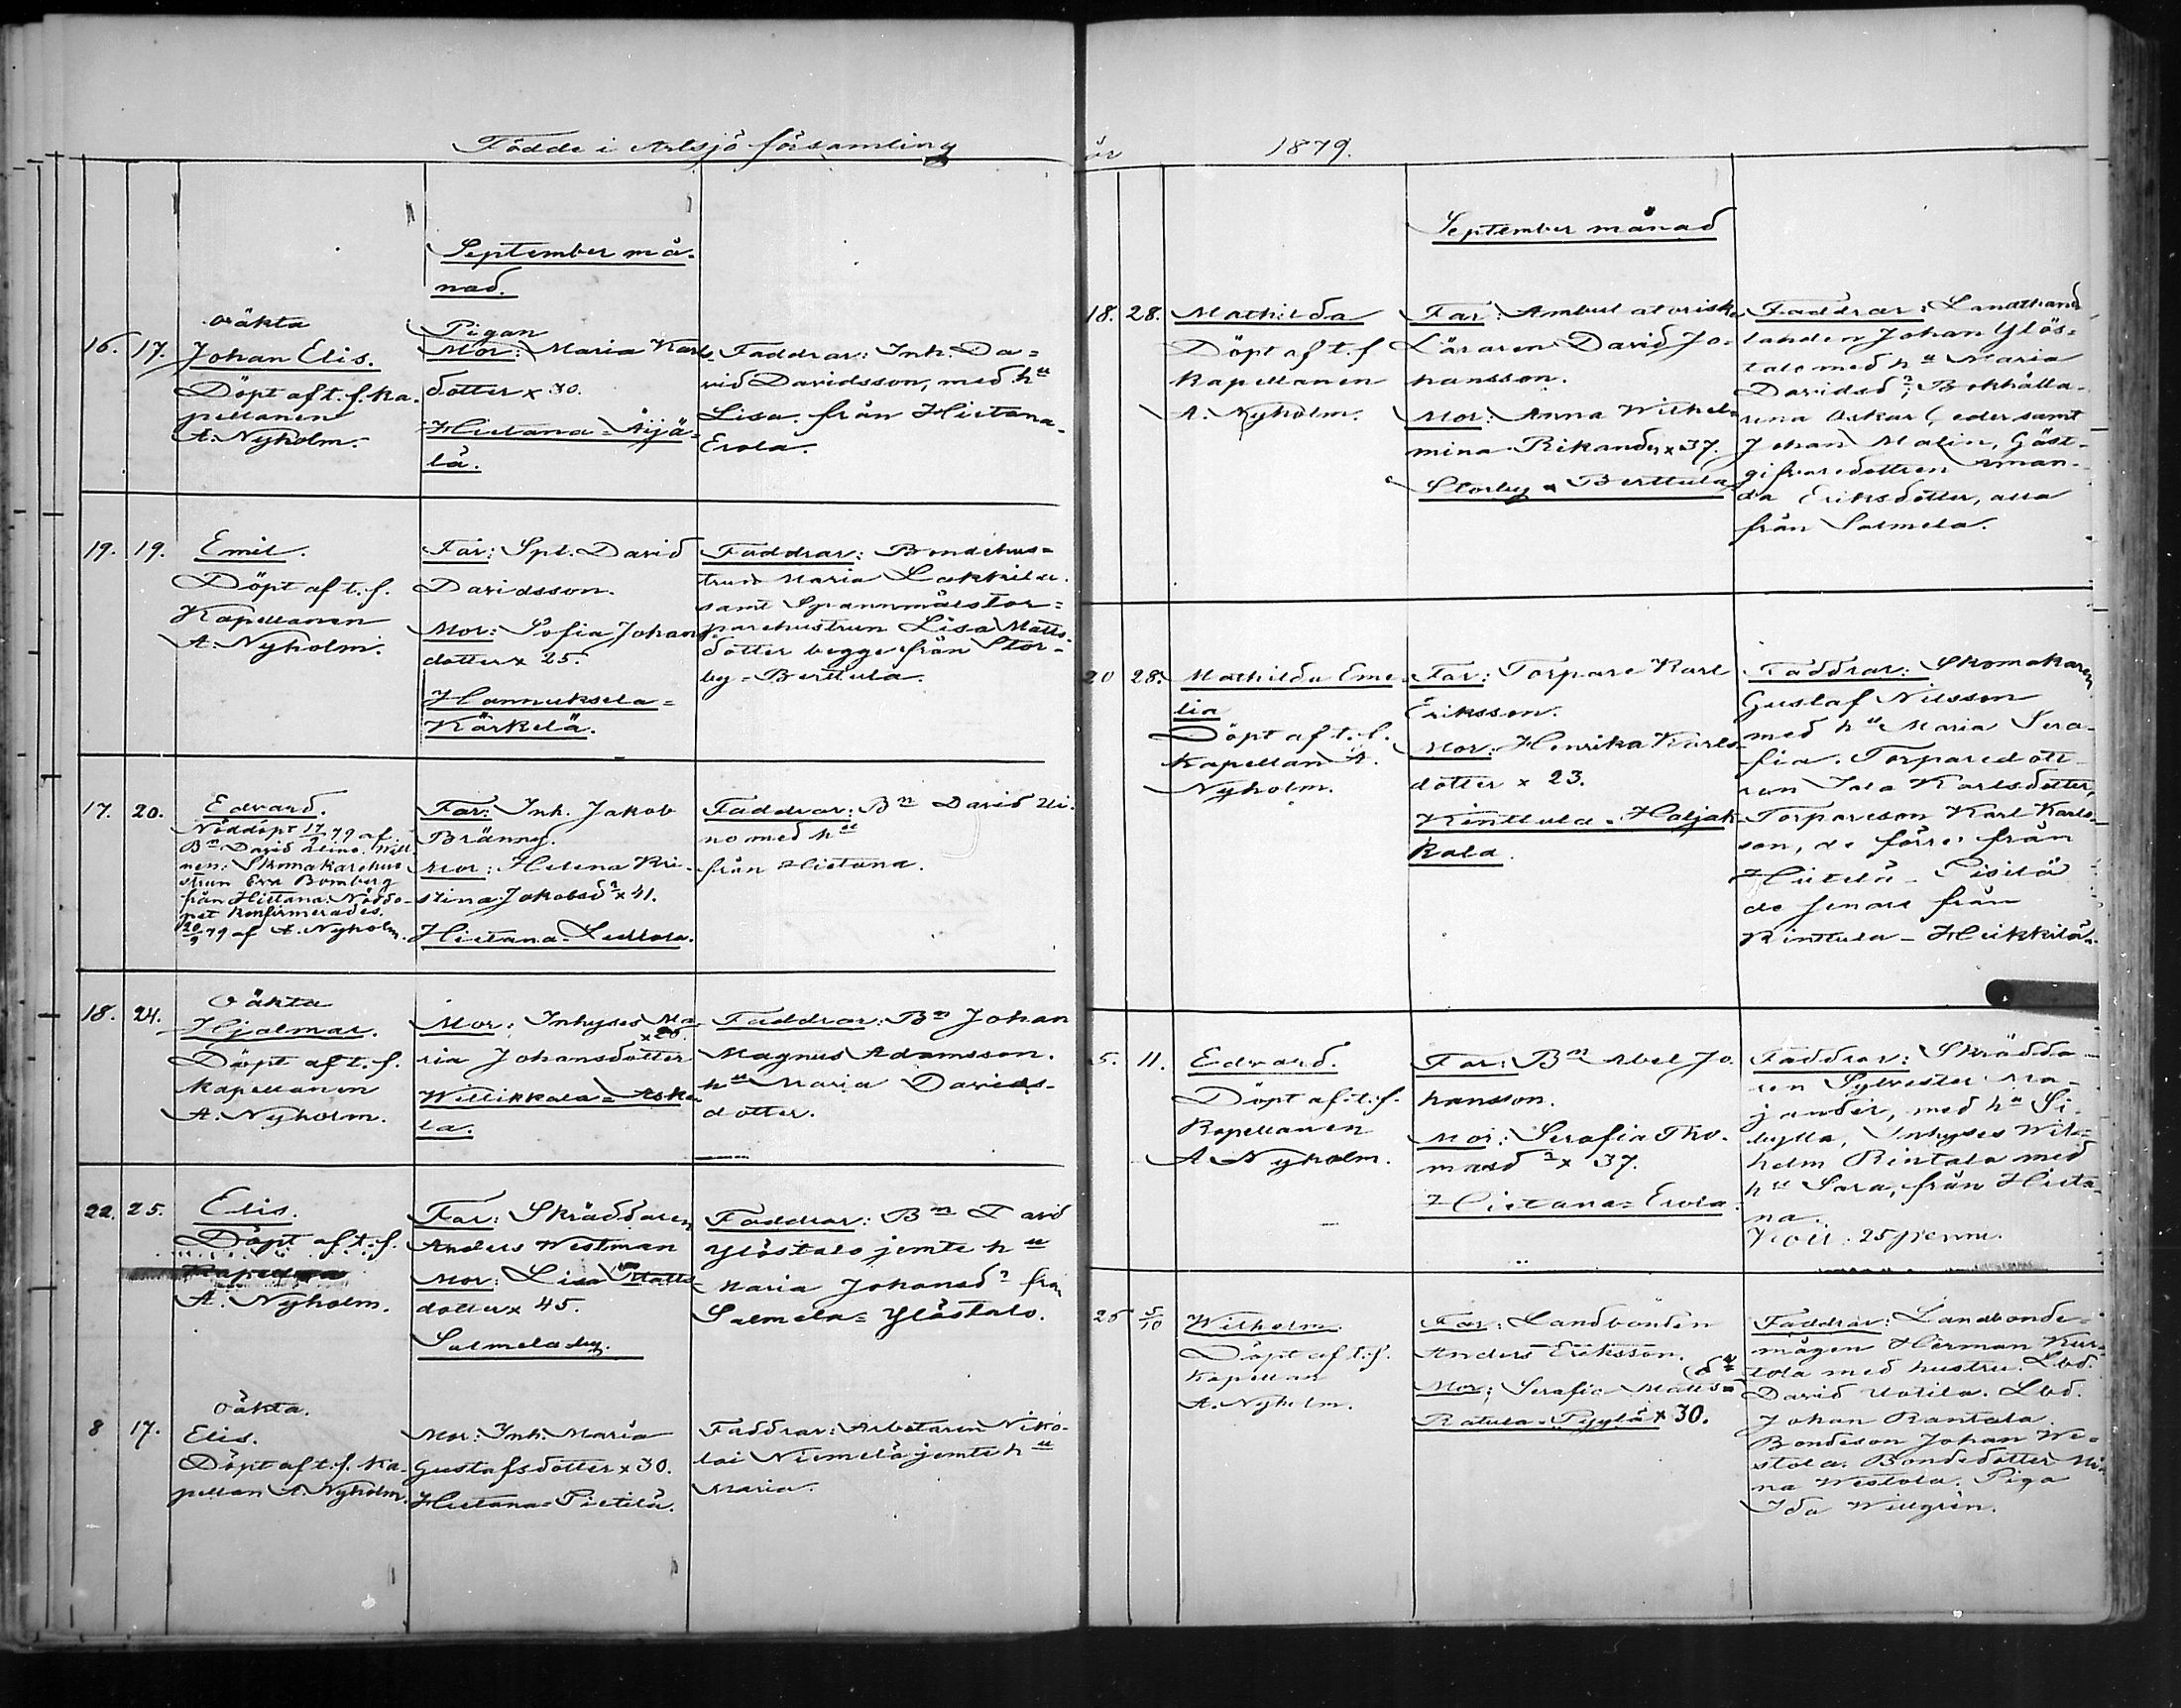 Födde i Artsjö församling år 1879.
September må-
nad.
16. 17. oäkta
Johan Elis.
Döpt af t. f. ka-
pellanen
A. Nyholm.
Pigan
Mor: Maria Karls
dotter x 30.
Hietana = Äijä-
lä.
Faddrar: Inh. Da=
vid Davidsson, med hu
Lisa från Hietana-
Erola.
19. 19. Emil.
Döpt af t. f.
Kapellanen
A. Nyholm.
Far: Spt. David
Davidsson.
Mor: Sofia Johans
dotter x 25.
Hannuksela=
Kärkelä.
Faddrar: Bondehus=
trun Maria Lakkila
samt Spannmålstor=
parehustrun Lisa Matts-
dotter begge från Stor-
by = Berttula.
17. 20. Edvard.
Nöddöpt 17/9 79 af
Bn David Uino. Witt
nen: Skomakarehus
trun Eva Bomberg
från Hietana. Nöddo-
pet konfirmerades.
20/9 79 af A. Nyholm.
Far: Inh. Jakob
Bränny.
Mor: Helena Kri-
stina Jakobsdr x 41.
Hietana-
Faddrar: Bn David Ui-
no med hu
från Hietana.
18. 24. Oäkta
Hjalmar.
Döpt af t. f.
Kapellanen
A. Nyholm.
Mor: Inhyses Ma-
ria Johansdotter
Willikkala = Aske
la.
Faddrar: Bn Johan
Magnus Adamsson.
hu Maria Davids-
dotter.
22. 25. Elis.
Döpt af t. f.
Kapellan
A. Nyholm.
Far: Skräddaren
Anders Westman
Mor: Lisa Matts-
dotter x 45.
Salmela by.
Faddrar: Bn David
Ylöstalo jemte hu
Maria Johansdr från
Salmela = Ylöstalo.
8 17. Oäkta.
Elis.
Döpt af t. f. Ka-
pellan A. Nyholm.
Mor: Inh. Maria
Gustafsdotter x 30.
Hietana = Pietilä.
Faddrar: Arbetaren Niko-
lai Niemelä jemte hu
Maria.
September månad
18. 28. Mathilda
Döpt af t. f
Kapellanen
A. Nyholm.
Far: Ambulatoriske
Läraren David Jo-
hansson.
Mor: Anna Wilhel=
mina Rikander x 37.
Storby = Berttula
Faddrar: Lanthand
landen Johan Ylös=
talo med hu Maria
Davidsdr, Bokhålla-
rena Oskar Ceder samt
Johan Malin, Gäst-
gifvaredottren Aman-
da Eriksdotter, alla
från Salmela.
20 28. Mathilda Eme-
lia
Döpt af t. f.
Kapellan A.
Nyholm.
Far: Torpare Karl
Eriksson.
Mor: Henrika Karls-
dotter x 23.
Kinttula - Haljak
kala.
Faddrar: Skomakaren
Gustaf Nilsson
med hu Maria Sera-
fia. Torparedott-
ren Ida Karlsdotter,
Torpareson Karl Karls-
son, de förre från
de senare från
Kinttula - Heikkilä.
5. 11. Edvard.
Döpt af t. f.
Kapellanen
A. Nyholm.
Far: Bn Abel Jo-
hansson.
Mor: Serafia Tho-
masdr x 37.
Hietana = Erola.
Faddrar: Skrädda-
ren Sylvester Ma-
jander, med hu Si-
bylla, Inhyses Wil=
helm Rintala med
hu Sara, från Hieta-
na.
25 penni.
26 5/10 Wilhelm.
Döpt af t. f.
Kapellan
A. Nyholm.
Far: Landbonden
Anders Eriksson.
Mor: Serafia Matts= dr
Ratula = Pyylä x 30.
Faddrar: Landbonde-
mågen Herman Kur-
tola med hustru. Lbd.
David Uotila. Lbd.
Johan Rantala.
Bondeson Johan We-
stola. Bondedotter Mi
na Westola. Piga
Ida Willgren.